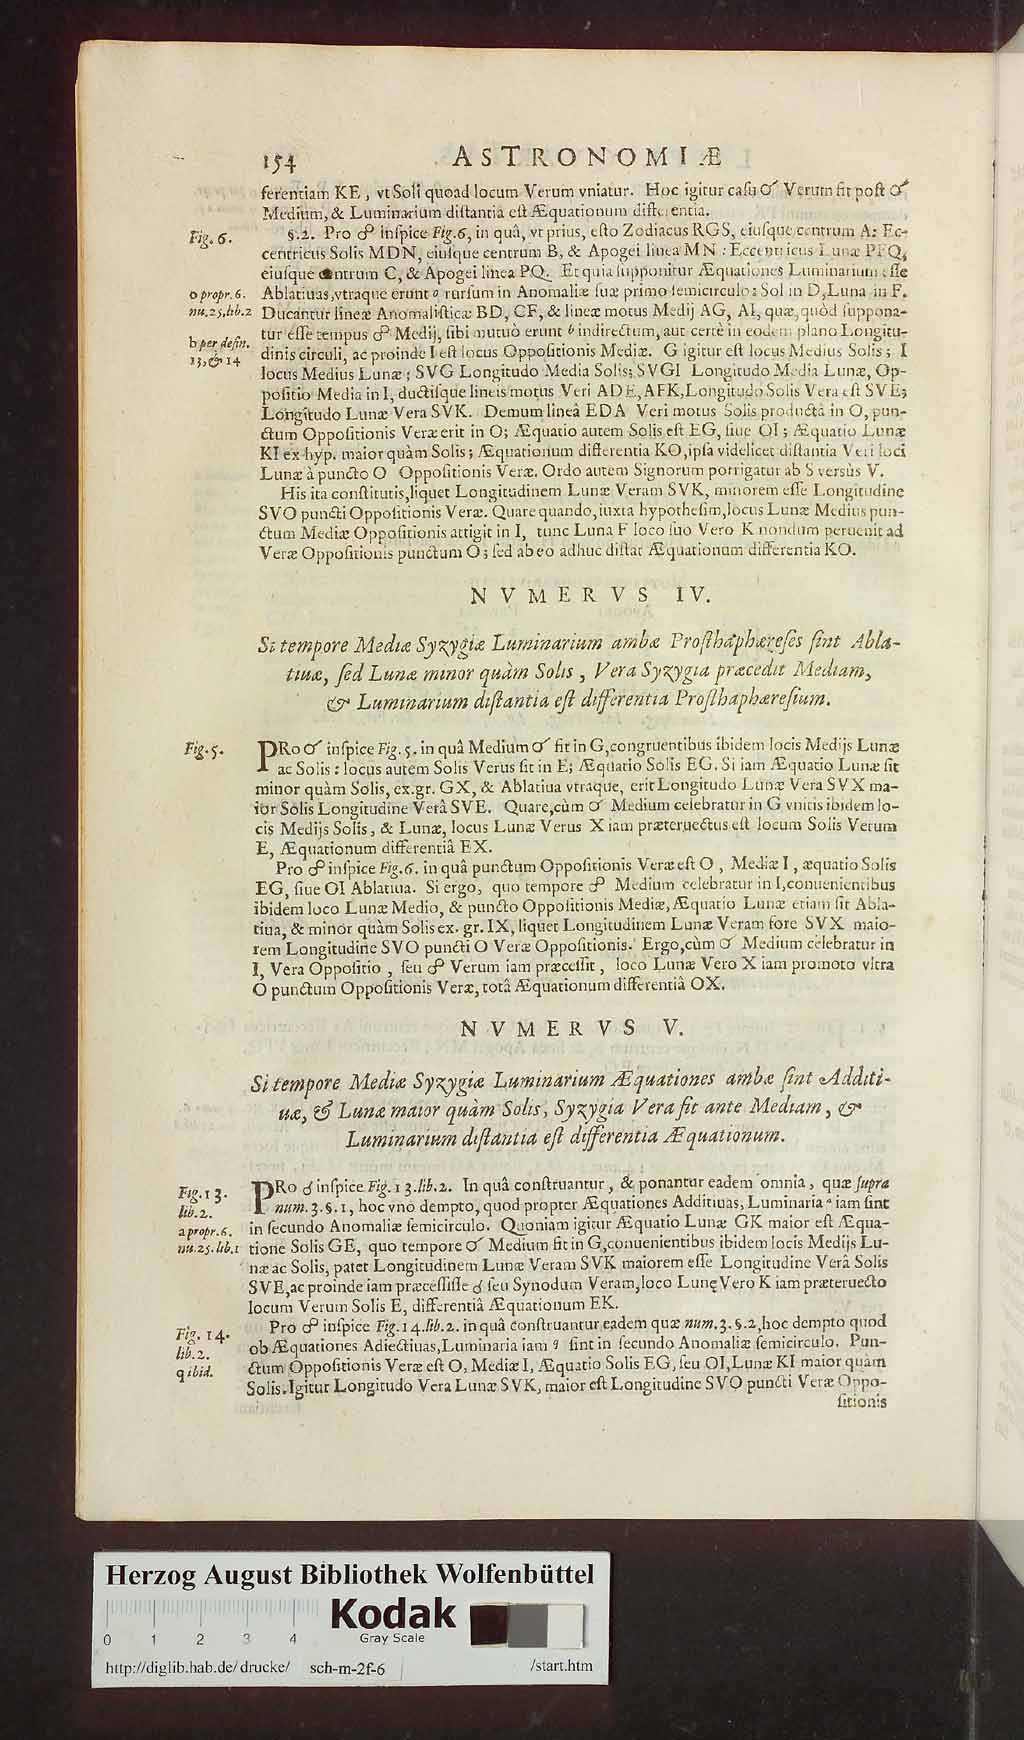 154 ASTRONOMIÆ
ferentiam KE, vt Soli quoad locum Verum vniatur. Hoc igitur casu ☌ Verum fit post ☌
Medium, & Luminarium distantia est Æquationum differentia.
Fig. 6.
§.2. Pro ☍ inspice Fig.6, in quâ, vt prius, esto Zodiacus RGS, eiusque centrum A: Ec-
centricus Solis MDN, eiusque centrum B, & Apogei linea MN: Eccentricus Lunæ PFQ,
eiusque centrum C, & Apogei linea PQ. Et quia supponitur Æquationes Luminarium esse
o propr. 6.
nu.25.lib.2
Ablatiuas, vtraque erunt o rursum in Anomaliæ suæ primo semicirculo: Sol in D, Luna in F.
Ducantur lineæ Anomalisticæ BD, CF, & lineæ motus Medij AG, AI, quæ, quòd suppona-
b per defin.
13, & 14
tur esse tempus ☍ Medij, sibi mutuò erunt b indirectum, aut certè in eodem plano Longitu-
dinis circuli, ac proinde I est locus Oppositionis Mediæ. G igitur est locus Medius Solis; I
locus Medius Lunæ; SVG Longitudo Media Solis; SVGI Longitudo Media Lunæ, Op-
positio Media in I, ductisque lineis motus Veri ADE, AFK, Longitudo Solis Vera est SVE;
Longitudo Lunæ Vera SVK. Demum lineâ EDA Veri motus Solis productâ in O, pun-
ctum Oppositionis Veræ erit in O; Æquatio autem Solis est EG, siue OI; Æquatio Lunæ
KI ex hyp. maior quàm Solis; Æquationum differentia KO, ipsa videlicet distantia Veri loci
Lunæ à puncto O Oppositionis Veræ. Ordo autem Signorum porrigatur ab S versùs V.
His ita constitutis, liquet Longitudinem Lunæ Veram SVK, minorem esse Longitudine
SVO puncti Oppositionis Veræ. Quare quando, iuxta hypothesim, locus Lunæ Medius pun-
ctum Mediæ Oppositionis attigit in I, tunc Luna F loco suo Vero K nondum peruenit ad
Veræ Oppositionis punctum O; sed ab eo adhuc distat Æquationum differentia KO.
NVMERVS IV.
Si tempore Mediæ Syzygiæ Luminarium ambæ Prosthaphæreses sint Abla-
tiuæ, sed Lunæ minor quàm Solis, Vera Syzygia præcedit Mediam,
& Luminarium distantia est differentia Prosthaphæresium.
Fig. 5.
PRo ☌ inspice Fig. 5. in quâ Medium ☌ fit in G, congruentibus ibidem locis Medijs Lunæ
ac Solis: locus autem Solis Verus sit in E; Æquatio Solis EG. Si iam Æquatio Lunæ sit
minor quàm Solis, ex.gr. GX, & Ablatiua vtraque, erit Longitudo Lunæ Vera SVX ma-
ior Solis Longitudine Verâ SVE. Quare, cùm ☌ Medium celebratur in G vnitis ibidem lo-
cis Medijs Solis, & Lunæ, locus Lunæ Verus X iam præteruectus est locum Solis Verum
E, Æquationum differentiâ EX.
Pro ☍ inspice Fig.6. in quâ punctum Oppositionis Veræ est O, Mediæ I, æquatio Solis
EG, siue OI Ablatiua. Si ergo, quo tempore ☍ Medium celebratur in I, conuenientibus
ibidem loco Lunæ Medio, & puncto Oppositionis Mediæ, Æquatio Lunæ etiam sit Abla-
tiua, & minor quàm Solis ex. gr. IX, liquet Longitudinem Lunæ Veram fore SVX maio-
rem Longitudine SVO puncti O Veræ Oppositionis. Ergo, cùm ☌ Medium celebratur in
I, Vera Oppositio, seu ☍ Verum iam præcessit, loco Lunæ Vero X iam promoto vltra
O punctum Oppositionis Veræ, totâ Æquationum differentiâ OX.
NVMERVS V.
Si tempore Mediæ Syzygiæ Luminarium Æquationes ambæ sint Additi-
uæ, & Lunæ maior quàm Solis, Syzygia Vera fit ante Mediam, &
Luminarium distantia est differentia Æquationum.
Fig. 13.
lib. 2.
a propr. 6.
nu.25.lib.1
PRo ☌ inspice Fig. 13. lib.2. In quâ construantur, & ponantur eadem omnia, quæ supra
num. 3. §. 1, hoc vno dempto, quod propter Æquationes Additiuas, Luminaria a iam sint
in secundo Anomaliæ semicirculo. Quoniam igitur Æquatio Lunæ GK maior est Æqua-
tione Solis GE, quo tempore ☌ Medium fit in G, conuenientibus ibidem locis Medijs Lu-
næ ac Solis, patet Longitudinem Lunæ Veram SVK maiorem esse Longitudine Verâ Solis
SVE, ac proinde iam præcessisse ☌ seu Synodum Veram, loco Lunę Vero K iam præteruecto
locum Verum Solis E, differentiâ Æquationum EK.
Fig. 14.
lib. 2.
q ibid.
Pro ☍ inspice Fig. 14. lib. 2. in quâ construantur eadem quæ num. 3. §. 2, hoc dempto quod
ob Æquationes Adiectiuas, Luminaria iam q sint in secundo Anomaliæ semicirculo. Pun-
ctum Oppositionis Veræ est O, Mediæ I, Æquatio Solis EG, seu OI, Lunæ KI maior quàm
Solis. Igitur Longitudo Vera Lunæ SVK, maior est Longitudine SVO puncti Veræ Oppo-
sitionis
Herzog August Bibliothek Wolfenbüttel
Kodak
Gray Scale
0 1 2 3 4
http://diglib.hab.de/drucke/ sch-m-2f-6 /start.htm